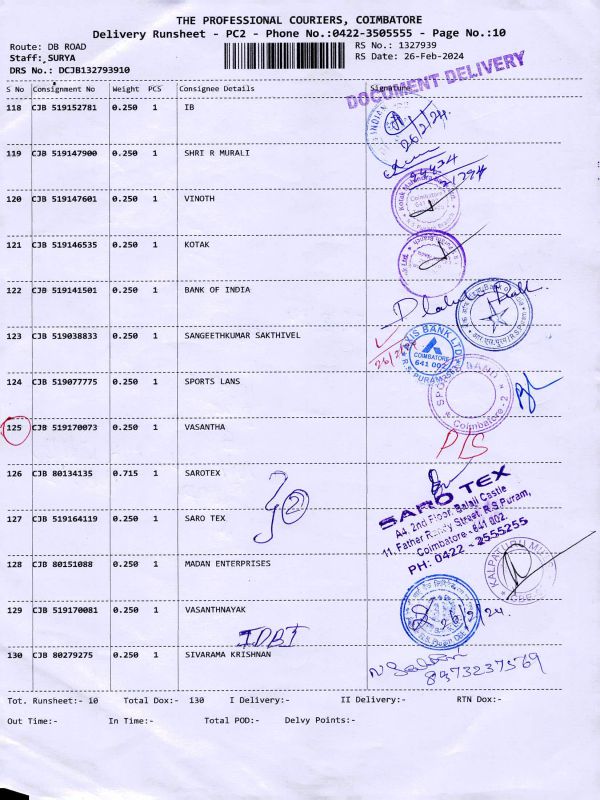 THE PROFESSIONAL COURIERS, COIMBATORE
Delivery Runsheet - PC2 - Phone No.:0422-3505555 - Page No.:10
Route: DB ROAD RS No.: 1327939
Staff: SURYA RS Date: 26-Feb-2024
DRS No.: DCJB132793910
DOCUMENT DELIVERY
S No Consignment No Weight PCS Consignee Details Signature
118 CJB 519152781 0.250 1 IB
26/2/24
119 CJB 519147900 0.250 1 SHRI R MURALI
120 CJB 519147601 0.250 1 VINOTH
Kotak Mahindra
Coimbatore
121 CJB 519146535 0.250 1 KOTAK
122 CJB 519141501 0.250 1 BANK OF INDIA
123 CJB 519038833 0.250 1 SANGEETHKUMAR SAKTHIVEL
AXIS BANK LTD
COIMBATORE
641 002
R.S. PURAM
124 CJB 519077775 0.250 1 SPORTS LANS
Coimbatore-2
125 CJB 519170073 0.250 1 VASANTHA
PLS
126 CJB 80134135 0.715 1 SAROTEX
127 CJB 519164119 0.250 1 SARO TEX
SARO TEX
A4, 2nd Floor, Balaji Castle
11, Father Randy Street, R.S.Puram,
Coimbatore - 641 002.
PH: 0422 - 2555255
128 CJB 80151088 0.250 1 MADAN ENTERPRISES
129 CJB 519170081 0.250 1 VASANTHNAYAK
26/2/24.
IDBI
130 CJB 80279275 0.250 1 SIVARAMA KRISHNAN
8973237569
Tot. Runsheet:- 10 Total Dox:- 130 I Delivery:- II Delivery:- RTN Dox:-
Out Time:- In Time:- Total POD:- Delvy Points:-